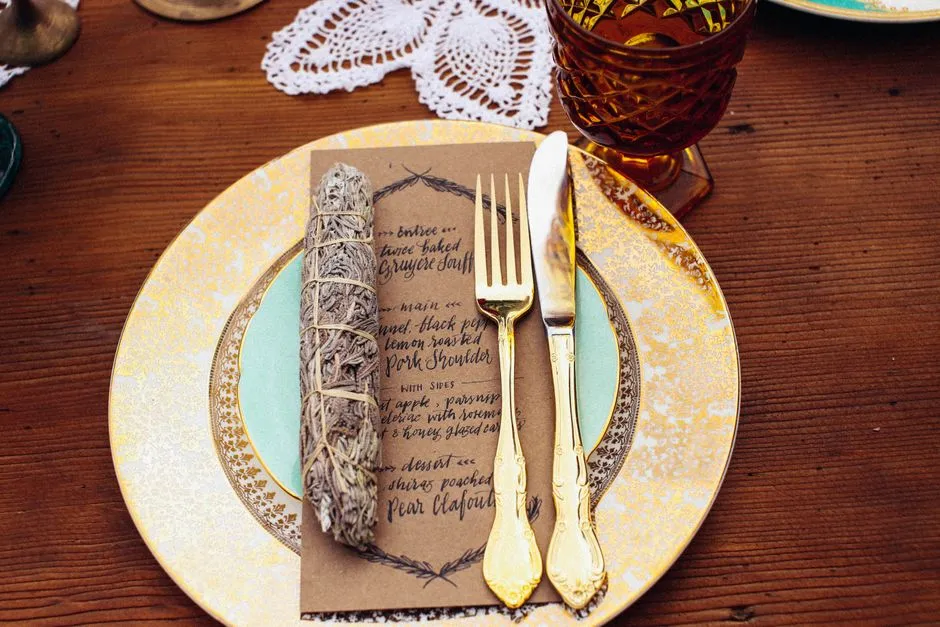 entrée
twice baked
Gruyere Souff
main
nnel, black pepp
lemon roasted
Pork Shoulder
WITH SIDES
st apple, parsnip
eleriac with rosem
t & honey glazed car
dessert
shiraz poached
Pear Clafout